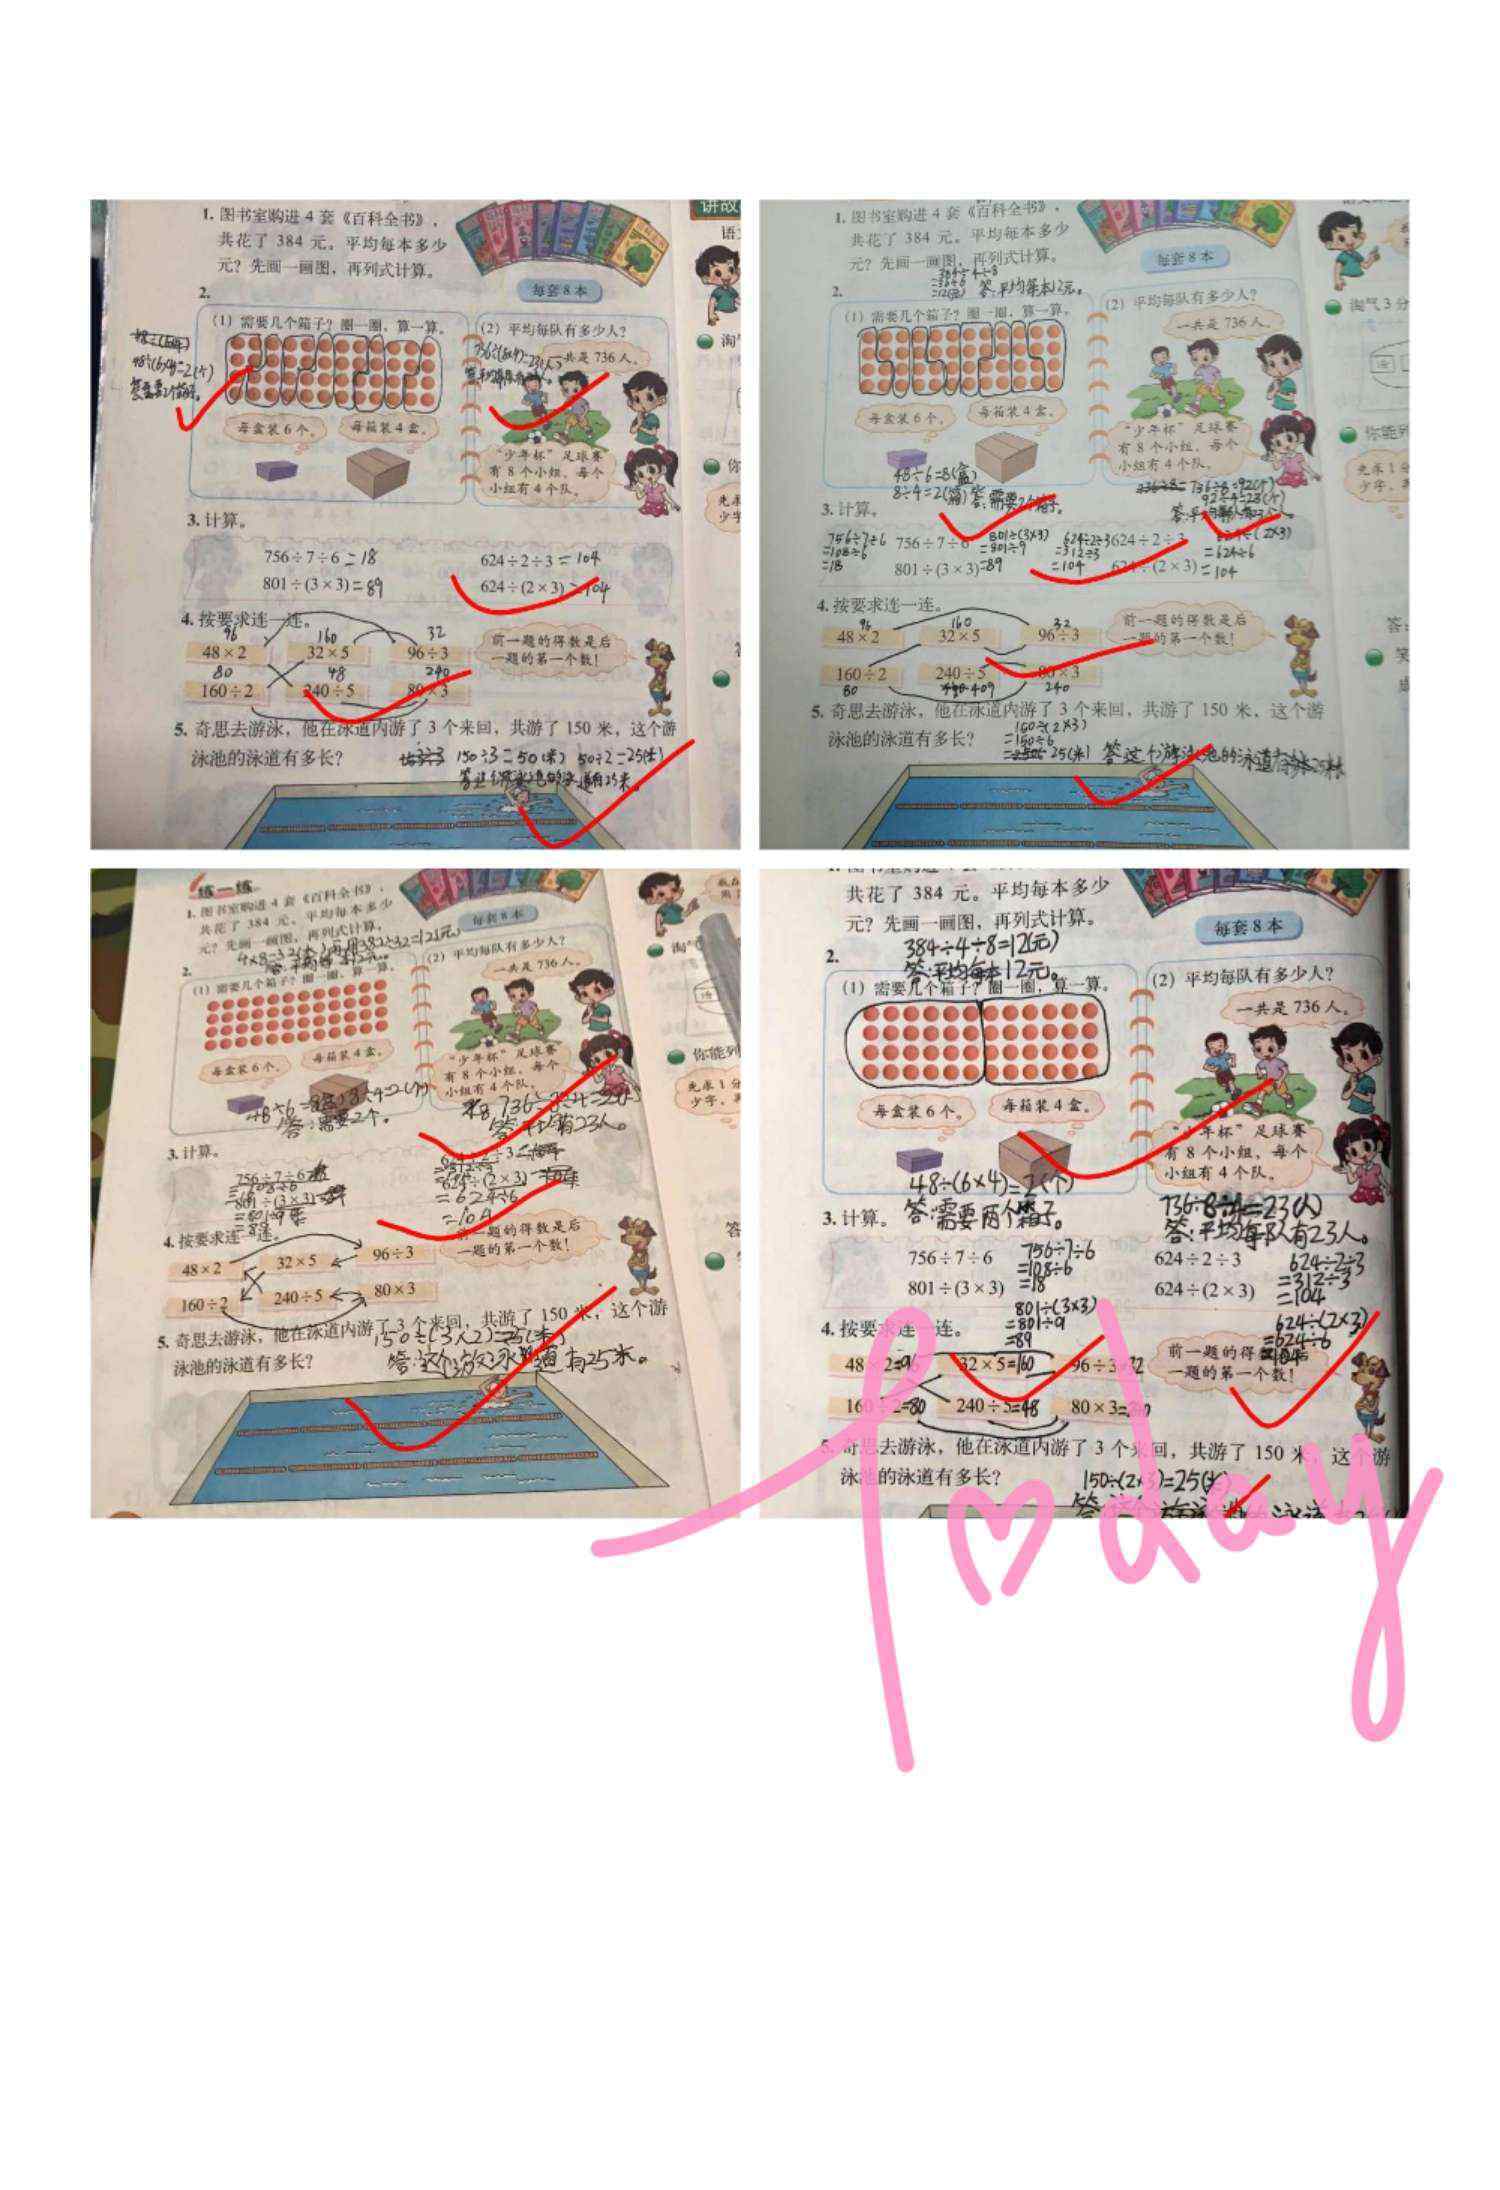 1. 图书室购进 4 套《百科全书》，
共花了 384 元。平均每本多少
元？先画一画图，再列式计算。
每套8本
2.
(1) 需要几个箱子？圈一圈，算一算。
(2) 平均每队有多少人？
48÷(6×4)=2(个)
736÷(8×4)=23(人)
一共是 736 人。
每盒装 6 个。
每箱装 4 盒。
“少年杯”足球赛
有 8 个小组，每个
小组有 4 个队。
3. 计算。
756÷7÷6=18
624÷2÷3=104
801÷(3×3)=89
624÷(2×3)=104
4. 按要求连一连。
96
160
32
48×2
32×5
96÷3
前一题的得数是后
一题的第一个数！
80
48
240
160÷2
240÷5
80×3
5. 奇思去游泳，他在泳道内游了 3 个来回，共游了 150 米，这个游
泳池的泳道有多长？
150÷3=50(米) 50÷2=25(米)
讲故
语
淘
你
先
1. 图书室购进 4 套《百科全书》，
共花了 384 元。平均每本多少
元？先画一画图，再列式计算。
每套8本
384÷4÷8
=12(元) 答:平均每本12元。
2.
(1) 需要几个箱子？圈一圈，算一算。
(2) 平均每队有多少人？
一共是 736 人。
每盒装 6 个。
每箱装 4 盒。
“少年杯”足球赛
有 8 个小组，每个
小组有 4 个队。
48÷6=8(盒)
8÷4=2(箱) 答:需要2个箱子。
736÷8=92(个)
92÷4=23(个)
3. 计算。
756÷7÷6
=108÷6
=18
756÷7÷6
801÷(3×3)
=801÷9
=89
801÷(3×3)
624÷2÷3
=312÷3
=104
624÷2÷3
624÷(2×3)
=624÷6
=104
624÷(2×3)
4. 按要求连一连。
96
160
32
48×2
32×5
96÷3
前一题的得数是后
一题的第一个数！
160÷2
240÷5
80×3
80
409
240
5. 奇思去游泳，他在泳道内游了 3 个来回，共游了 150 米，这个游
泳池的泳道有多长？
=150÷6
25(米)
淘气 3 分
你能列
先求 1 分
少字，
练一练
1. 图书室购进 4 套《百科全书》，
共花了 384 元。平均每本多少
元？先画一画图，再列式计算。
每套8本
2.
(1) 需要几个箱子？圈一圈，算一算。
(2) 平均每队有多少人？
一共是 736 人。
每盒装 6 个。
每箱装 4 盒。
“少年杯”足球赛
有 8 个小组，每个
小组有 4 个队。
答:需要2个。
3. 计算。
756÷7÷6
801÷(3×3)
624÷(2×3)
=624÷6
=104
4. 按要求连一连。
48×2
32×5
96÷3
前一题的得数是后
一题的第一个数！
160÷2
240÷5
80×3
5. 奇思去游泳，他在泳道内游了 3 个来回，共游了 150 米，这个游
泳池的泳道有多长？
150÷(3×2)=25(米)
淘
你能列
先求 1 分
少字，
共花了 384 元。平均每本多少
元？先画一画图，再列式计算。
每套8本
384÷4÷8=12(元)
答:平均每本12元。
2.
(1) 需要几个箱子？圈一圈，算一算。
(2) 平均每队有多少人？
一共是 736 人。
每盒装 6 个。
每箱装 4 盒。
“少年杯”足球赛
有 8 个小组，每个
小组有 4 个队。
48÷(6×4)=2(个)
答:需要两个箱子。
736÷8÷4=23(人)
答:平均每队有23人。
3. 计算。
756÷7÷6
756÷7÷6
=108÷6
=18
801÷(3×3)
801÷(3×3)
=801÷9
=89
624÷2÷3
624÷2÷3
=312÷3
=104
624÷(2×3)
624÷(2×3)
=624÷6
4. 按要求连一连。
48×2=96
32×5=160
96÷3=32
前一题的得
一题的第一个数！
160÷2=80
240÷5=48
80×3=240
5. 奇思去游泳，他在泳道内游了 3 个来回，共游了 150 米，这个游
泳池的泳道有多长？
150÷(2×3)=25(米)
Today